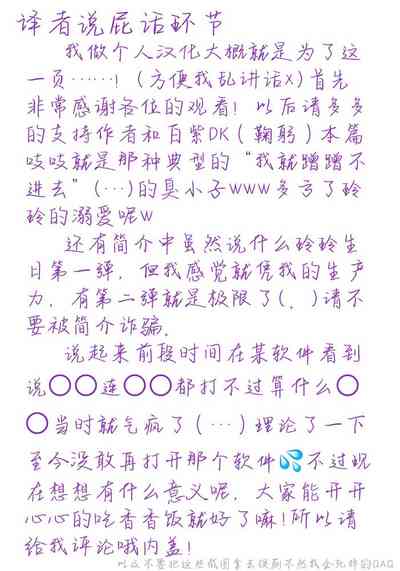 译者说屁话环节
我做个人汉化大概就是为了这
一页……！（方便我乱讲话x）首先
非常感谢各位的观看！以后请多多
的支持作者和百紫DK（鞠躬）本篇
吱吱就是那种典型的“我就蹭蹭不
进去”（…)的臭小子www多亏了玲
玲的溺爱呢w
还有简介中虽然说什么玲玲生
日第一弹，但我感觉就凭我的生产
力，有第二弹就是极限了(．)请不
要被简介诈骗．
说起来前段时间在某软件看到
说〇〇连〇〇都打不过算什么〇
〇当时就气疯了（…）理论了一下
至今没敢再打开那个软件💦不过现
在想想有什么意义呢，大家能开开
心心的吃香香饭就好了嘛！所以请
给我评论哦内盖！
以及不要把这些截图拿去横刷不然我会死掉的QAQ